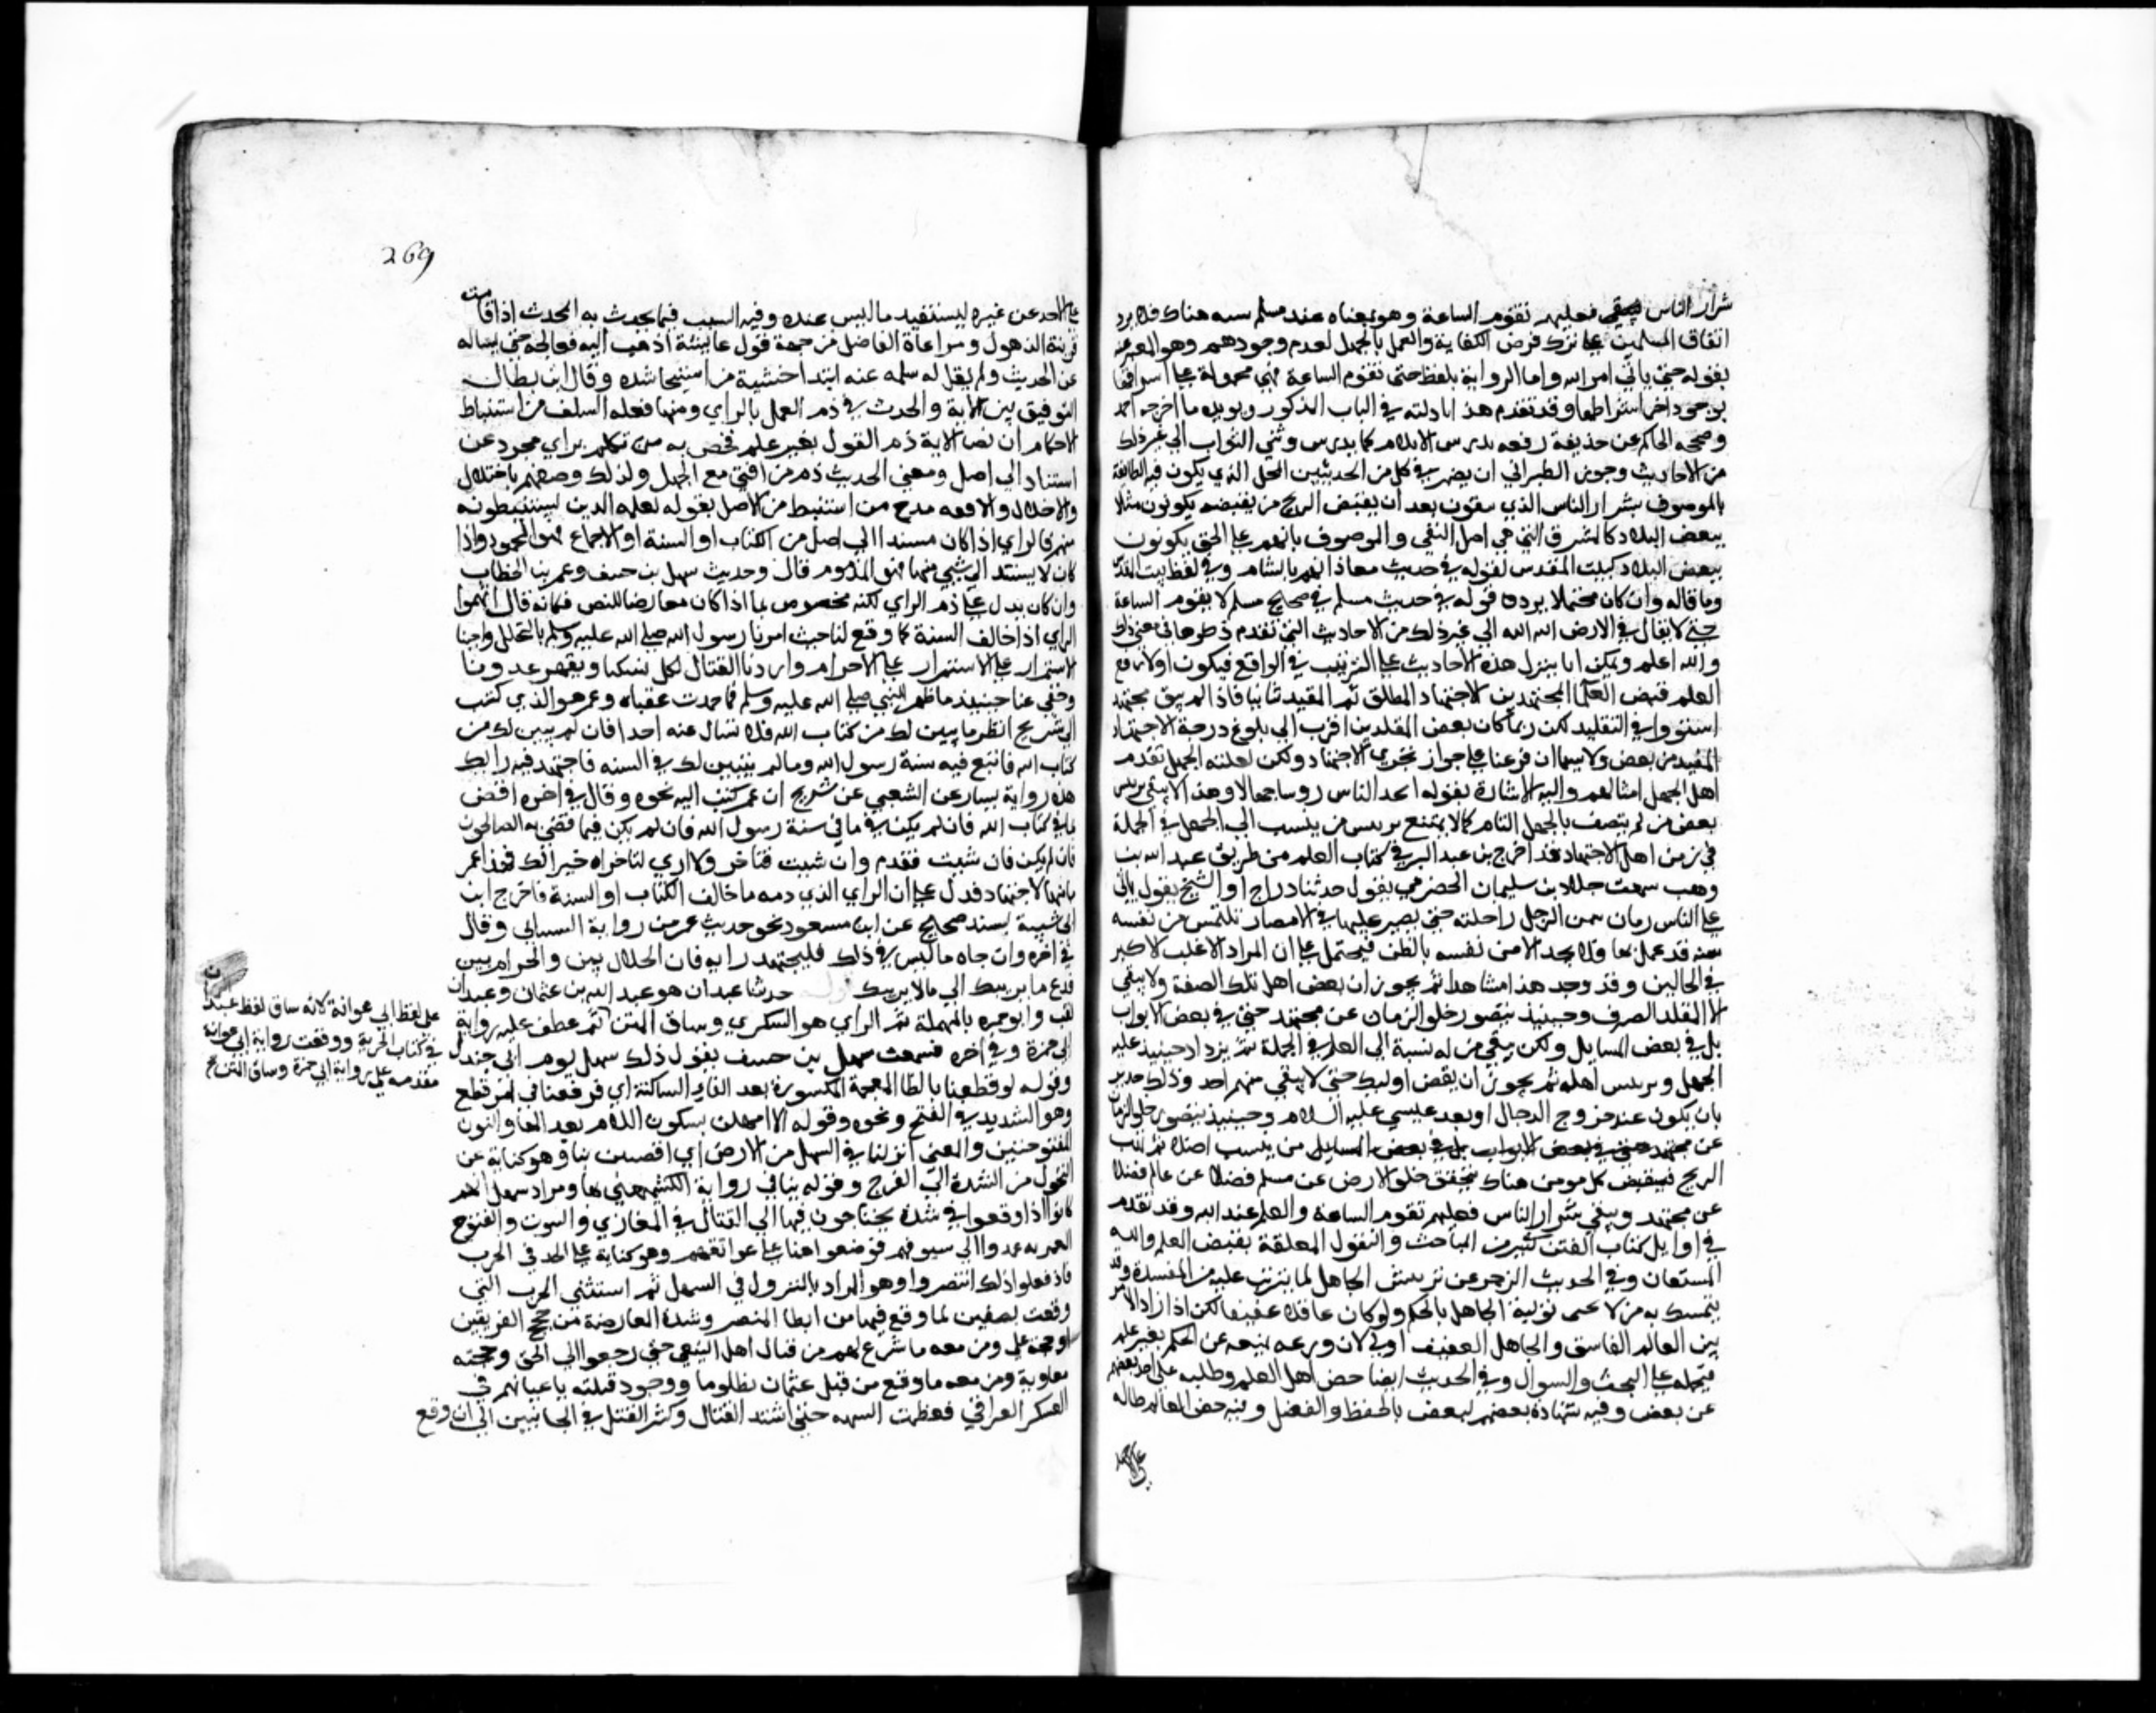 شرار الناس فعليهم تقوم الساعة وهو بمعناه عند مسلم هناك فلا يرد
اتفاق المسلمين على ترك فرض الكفاية والعمل بالجهل لعدم وجودهم وهو المعبر عنه
بقوله حتى ياتي امر الله واما الرواية بلفظ حتى تقوم الساعة فهي محمولة على اشرافها
بوجود اخر اشراطها وقد تقدم هذا بادلته في الباب المذكور ويويده ما اخرجه احمد
وصححه الحاكم عن حذيفة رفعه يدرس الاسلام كما يدرس وشي الثواب الى غير ذلك
من الاحاديث وجوز الطبراني ان يضمر في كل من الحديثين المحل الذي يكون فيه الطائفة
بالموصوف بشرار الناس الذي يبقون بعد ان يقبض الريح من يقبضه يكونون مثلا
ببعض البلاد كالمشرق التي هي اصل الفتن والموصوف بانهم على الحق يكونون
ببعض البلاد كبيت المقدس لقوله في حديث معاذ انهم بالشام وفي لفظ ببيت المقدس
وما قاله وان كان محتملا يرده قوله في حديث مسلم في صحيح مسلم لا يقوم الساعة
حتى لا يقال في الارض الله الله الى غير ذلك من الاحاديث التي تقدم ذكرها في معنى ذلك
والله اعلم ويمكن ان ينزل هذه الاحاديث على الترتيب في الواقع فيكون اولا رفع
العلم بقبض العلما المجتهدين الاجتهاد المطلق ثم المقيد ثانيا فاذا لم يبق مجتهد
استووا في التقليد لكن ربما كان بعض المقلدين اقرب الى بلوغ درجة الاجتهاد
المقيد من بعض ولاسيما ان فرعنا على جواز تجزي الاجتهاد ولكن لغلبة الجهل تقدم
اهل الجهل امثالهم واليه الاشارة بقوله اتخذ الناس روسا جهالا وهذا لا ينفي ترييس
بعض من لم يتصف بالجهل التام كما لا يمتنع ترييس من ينسب الى الجهل في الجملة
في زمن اهل الاجتهاد وقد اخرج بن عبد البر في كتاب العلم من طريق عبد الله بن
وهب سمعت خلاد بن سليمان الحضرمي يقول حدثنا دراج ابو الشيخ يقول ياتي
على الناس زمان يسمن الرجل راحلته حتى يصير عليها في الامصار يلتمس من يفتيه
بسنة قد عمل بها فلا يجد الا من يفتيه بالظن فيحتمل على ان المراد الاغلب الاكبر
في الحالين وقد وجد هذا مشاهدا ثم يجوز ان يقبض اهل تلك الصفة ولا يبقى
الا المقلد الصرف وحينئذ يتصور خلو الزمان عن مجتهد حتى في بعض الابواب
بل في بعض المسايل ولكن يبقى من له نسبة الى العلم في الجملة ثم يزداد حينئذ غلبة
الجهل وترييس اهله ثم يجوز ان يقبض اوليك حتى لا يبقى منهم احد وذلك جدير
بان يكون عند خروج الدجال او بعد عيسى عليه السلام وحينئذ يتصور خلو الزمان
عن مجتهد حتى في بعض الابواب بل في بعض المسايل من ينسب اصلا ثم تهب
الريح فيقبض كل مومن هناك يتحقق خلو الارض عن مسلم فضلا عن عالم فضلا
عن مجتهد ويبقى شرار الناس فعليهم تقوم الساعة والعلم عند الله وقد تقدم
في اوايل كتاب الفتن كثير من المباحث والنقول المعلقة بقبض العلم والله
المستعان وفي الحديث الزجر عن ترييس الجاهل لما يترتب عليه من المفسدة وقد
يتمسك به من لا يجيز تولية الجاهل بالحكم ولو كان عاقلا عفيفا لكن اذا دار الامر
بين العالم الفاسق والجاهل العفيف اولى لان ورعه يمنعه عن الحكم بغير علم
فيحمله على البحث والسوال وفي الحديث ايضا حض اهل العلم وطلبه على اخذ بعضهم
عن بعض وفيه شهادة بعضهم لبعض بالحفظ والفضل وفيه حض العالم طالبه
على الاخذ عن غيره ليستفيد ما ليس عنده وفيه التثبت فيما يحدث به المحدث اذا قامت
قرينة الذهول ومراعاة الفاضل من جهة قول عائشة اذهب اليه ففاتحه حتى يساله
عن الحديث ولم يقل له سله عنه ابتدا خشية من استيحاشه وقال ابن بطال
التوفيق بين الاية والحديث في ذم العمل بالراي ومنها فعله السلف من استنباط
الاحكام ان نص الاية ذم القول بغير علم فخص به من تكلم براي مجرد عن
استناد الى اصل ومعنى الحديث ذم من افتى مع الجهل ولذلك وصفهم باختلال
والاضلال والا فقد مدح من استنبط من الاصل بقوله لعلمه الذين يستنبطونه
منهم فالراي اذا كان مسندا الى اصل من الكتاب او السنة او الاجماع فهو المحمود واذا
كان لا يستند الى شي منها فهو المذموم قال وحديث سهل بن حنيف وعمر بن الخطاب
وان كان يدل على ذم الراي لكنه مخصوص بما اذا كان معارضا للنص فكانه قال اتهموا
الراي اذا خالف السنة كما وقع لنا حيث امرنا رسول الله صلى الله عليه وسلم بالتحلل واحبنا
الاستمرار على الاحرام واردنا القتال لكل نسكنا ويقهر عدونا
وخفي عنا حينيذ ما ظهر للنبي صلى الله عليه وسلم مما حمدت عقباه وعمر هو الذي كتب
الى شريح انظر ما يبين لك من كتاب الله فلا تسال عنه احدا فان لم يبين لك من
كتاب الله فاتبع فيه سنة رسول الله وما لم يتبين لك في السنه فاجتهد فيه رايك
هذه رواية سيار عن الشعبي عن شريح ان عمر كتب اليه نحوه وقال في اخره اقض
بما في كتاب الله فان لم يكن ففيما في سنة رسول الله فان لم يكن فبما قضى به الصالحون
فان لم يكن فان شيت فتقدم وان شيت فتاخر ولا ارى لتاخر الا خيرا لك فهذا عمر
يامر بالاجتهاد فدل على ان الراي الذي ذمه ما خالف الكتاب او السنة فاخرج ابن
ابي شيبة بسند صحيح عن ابن مسعود نحو حديث عمر من رواية الشيباني وقال
في اخره وان جاه ما ليس في ذلك فليجتهد رايه فان الحلال بين والحرام بين
فدع ما يريبك الى ما لا يريبك حدثنا عبدان هو عبد الله بن عثمان وعبدان
لقب وابو حمزه بالمهملة ثم الزاي هو السكري وساق المتن ثم عطف عليه رواية
ابي حمزة وفي اخره فسمعت سهل بن حنيف يقول ذلك سهل يوم ابي جندل
وقوله لوقطعنا بالظا المعجمة المكسورة بعد الفاء الساكنة اي فوقعنا في امر قطع
وهو الشديد في القبح ونحوه وقوله الا اسهلن بسكون اللام بعد الها والنون
المفتوحتين والمعنى انزلنا في السهل من الارض اي افضين بنا وهو كناية عن
التحول من الشدة الى الفرج وقوله بنا في رواية الكشميهني بها ومراد سهل انهم
كانوا اذا وقعوا في شدة يحتاجون فيها الى القتال في المغازي والثبوت والفتوح
العمريه عمدوا الى سيوفهم فوضعوها على عواتقهم وهو كناية على الجد في الحرب
فاذا فعلوا ذلك انتصروا وهو المراد بالنزول في السهل ثم استثنى الحرب التي
وقعت بصفين لما وقع فيها من ابطا النصر وشدة المعارضة من حجج الفريقين
اذ حجة علي ومن معه ما شرع لهم من قتال اهل البغي حتى رجعوا الى الحق وحجة
معاوية ومن معه ما وقع من قتل عثمان مظلوما ووجود قتلته باعيانهم في
العسكر العراقي فعظمت الشبهه حتى اشتد القتال وكثر القتل في الجانبين الى ان وقع
على لفظ ابي عوانة لانه ساق لفظ عبدان
في كتاب الجزية ووقعت رواية ابي عوانة
مقدمه على رواية ابي حمزة وساق المتن
269